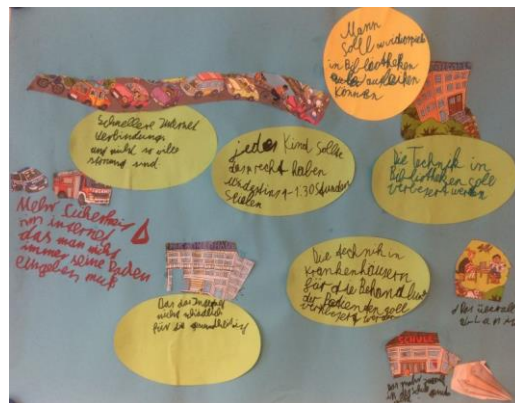 Mann
soll
in Bibliotheken
ausleihen
können
Schnellere Internet
Verbindung
und nicht so viele
störung und
jedes Kind sollte
das recht haben
mindestens 1-1.30 Stunden
Spielen
Die Technik in
Bibliotheken soll
verbesert weren
Mehr Sicherheit
im internet
das man nicht
immer seine Daten
eingeben muß
Die technik in
Krankenhäusern
für die Behandlung
der Patienten soll
verbesert weren
Das das Internet
nicht schädlich
für die gesundheit ist
SCHULE